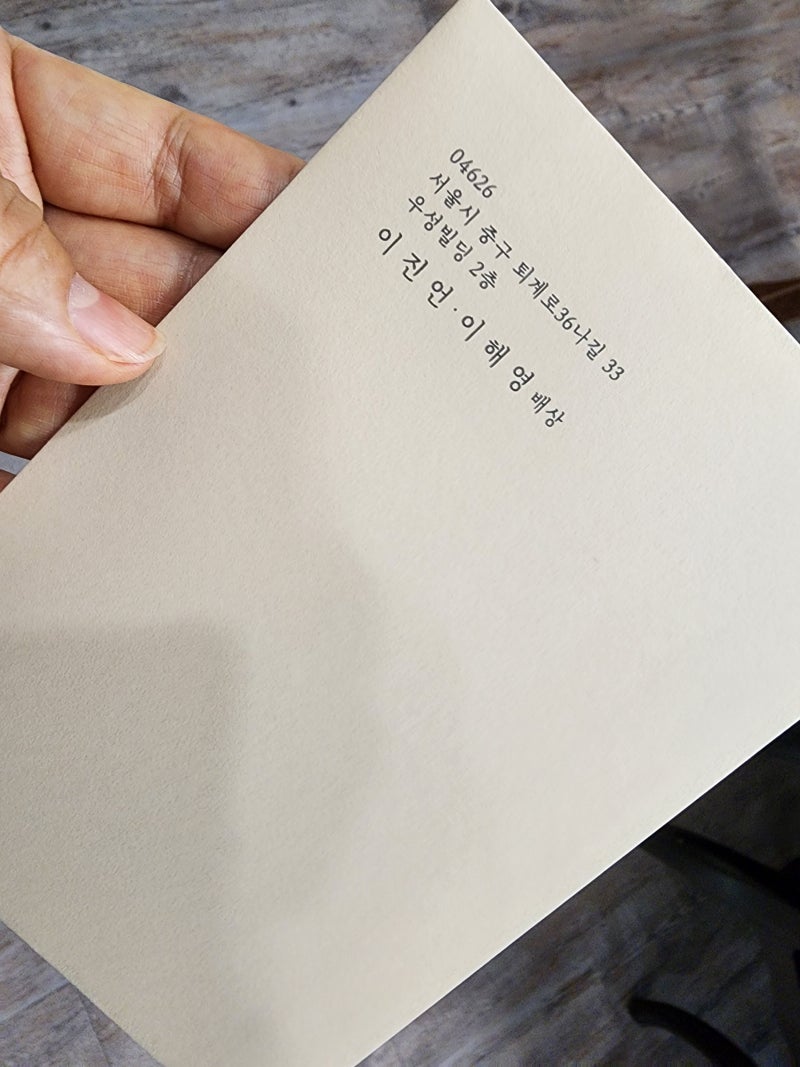 04626
서울시 중구 퇴계로36나길 33
우성빌딩 2층
이진언·이해영 배상